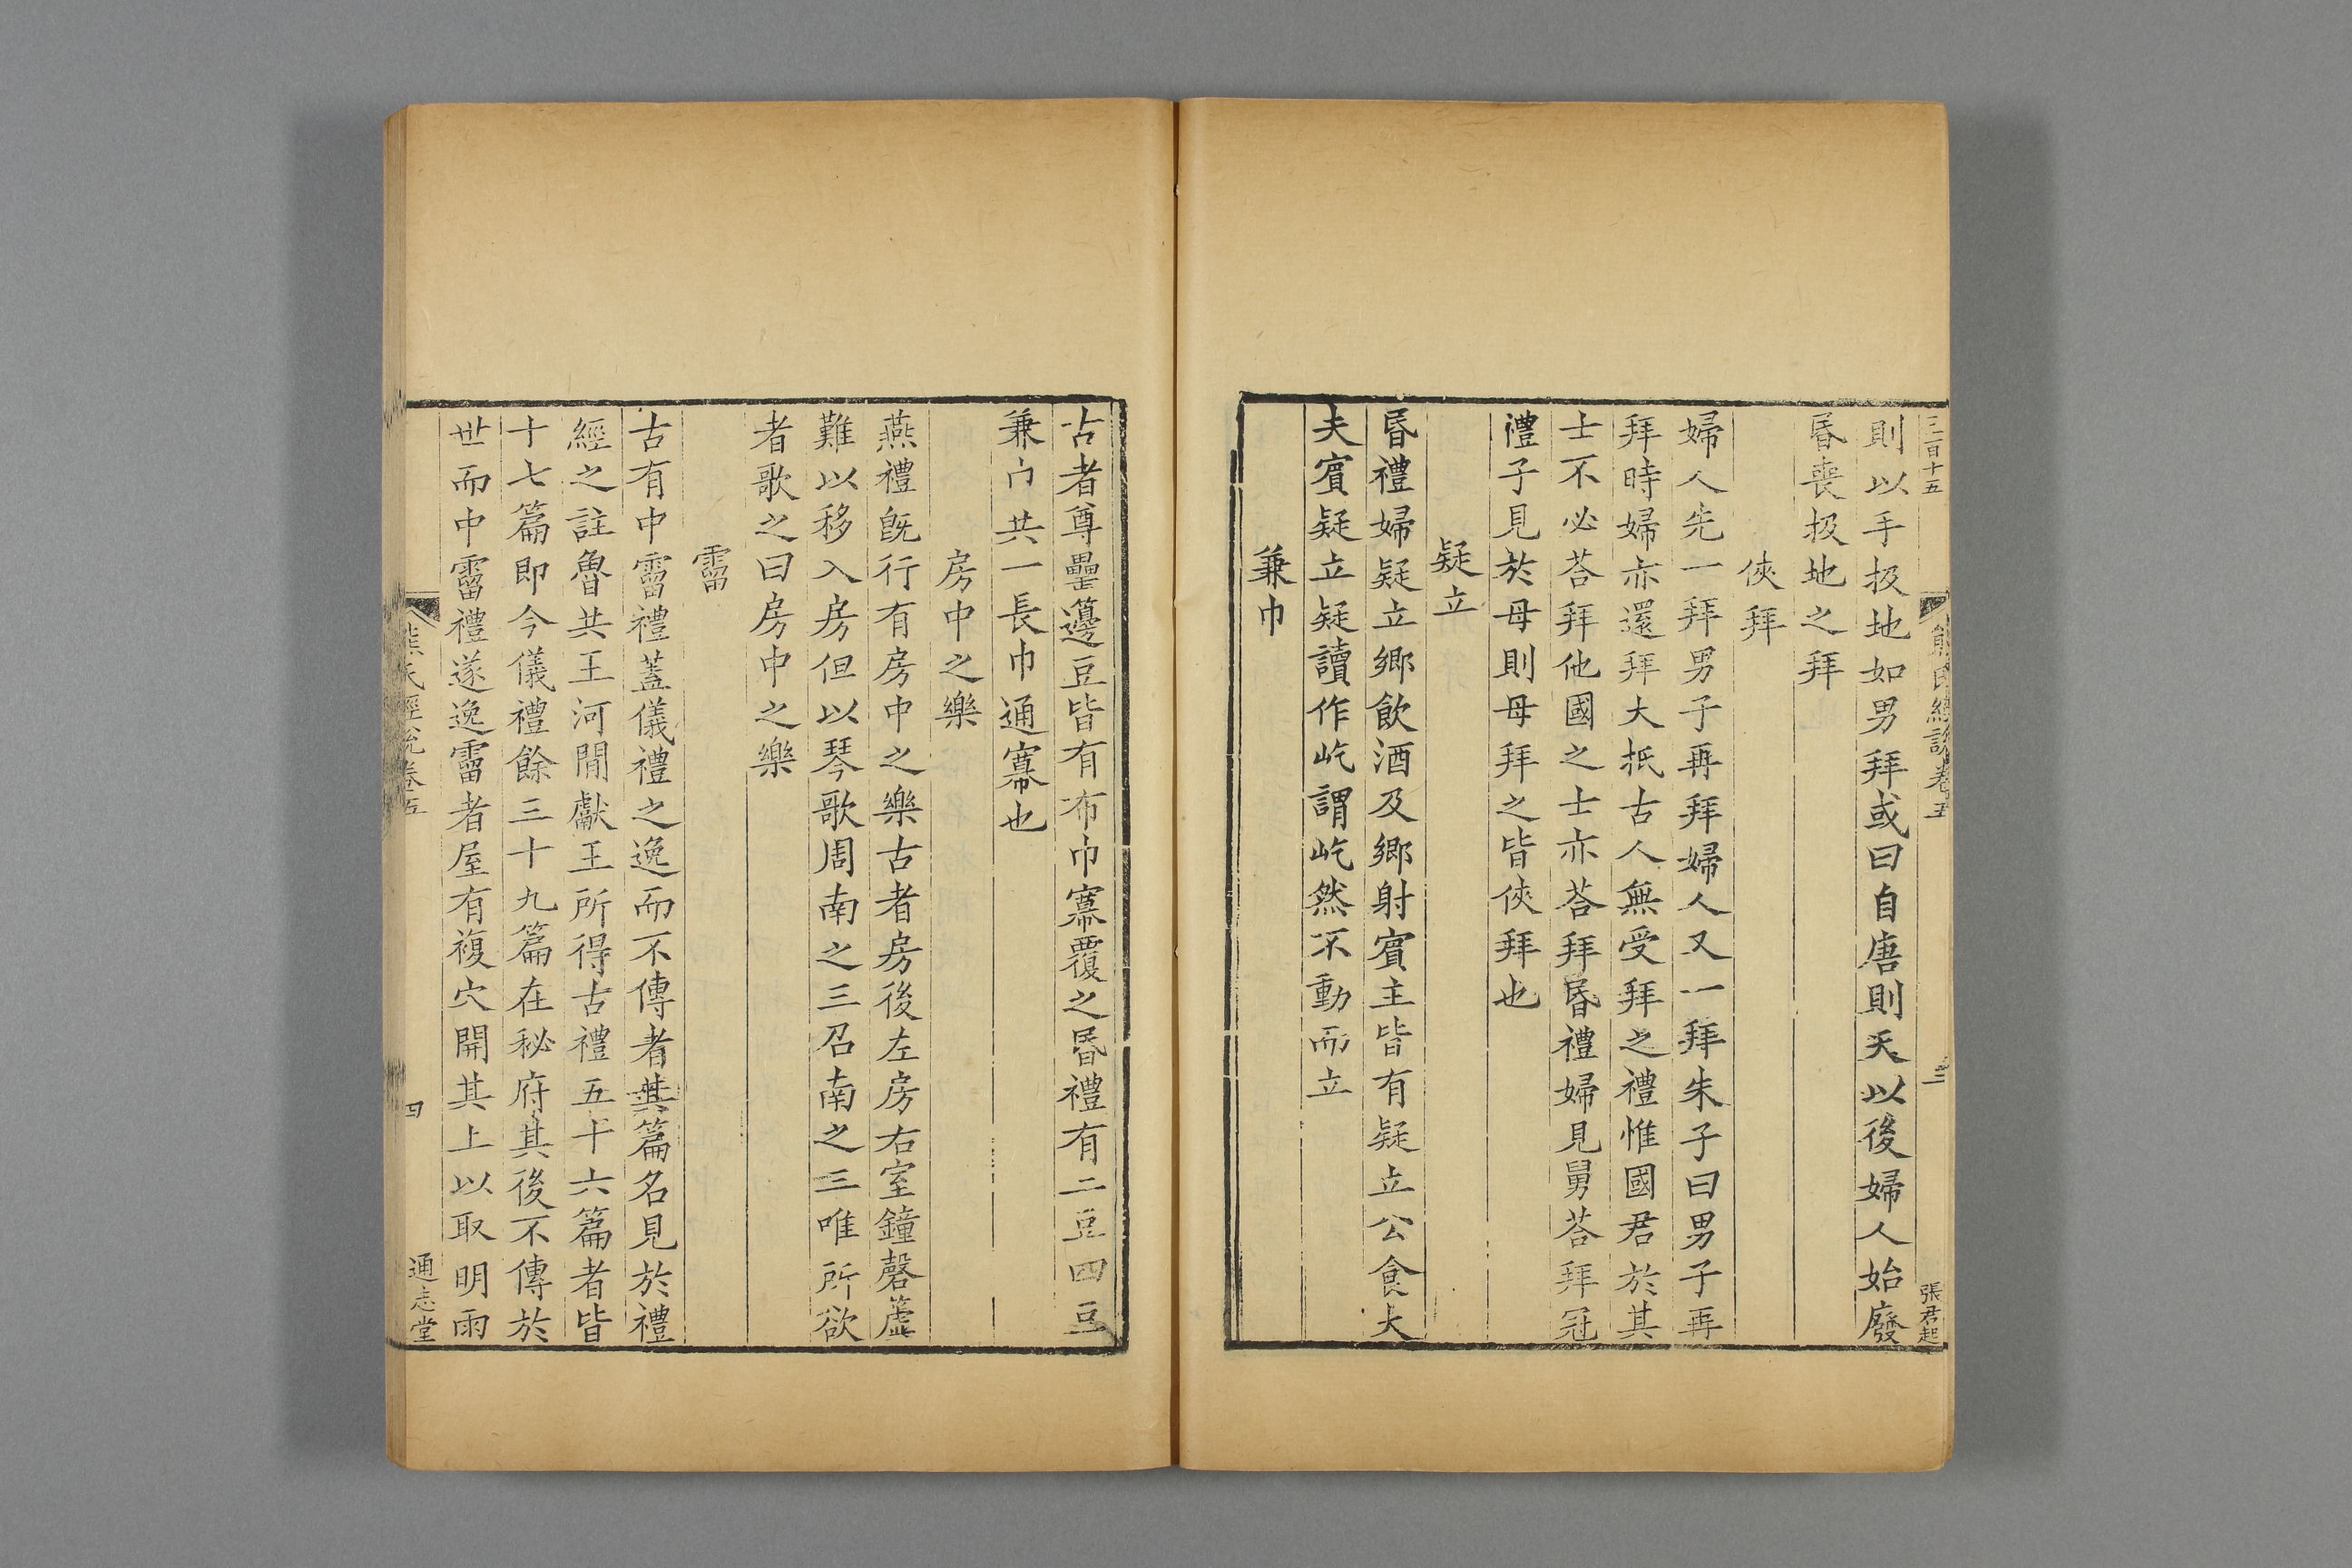 三百十五
熊氏經說卷五
三
張君起
則以手扱地如男拜或曰自唐則天以後婦人始廢
昬喪扱地之拜
俠拜
婦人先一拜男子再拜婦人又一拜朱子曰男子再
拜時婦亦還拜大抵古人無受拜之禮惟國君於其
士不必荅拜他國之士亦荅拜昬禮婦見舅荅拜冠
禮子見於母則母拜之皆俠拜也
疑立
昬禮婦疑立鄉飲酒及鄉射賓主皆有疑立公食大
夫賓疑立疑讀作屹謂屹然不動而立
兼巾
古者尊罍籩豆皆有布巾冪覆之昬禮有二豆四豆
兼巾共一長巾通冪也
房中之樂
燕禮既行有房中之樂古者房後左房右室鐘磬簴
難以移入房但以琴歌周南之三召南之三唯所欲
者歌之曰房中之樂
霤
古有中霤禮蓋儀禮之逸而不傳者其篇名見於禮
經之註魯共王河閒獻王所得古禮五十六篇者皆
十七篇即今儀禮餘三十九篇在秘府其後不傳於
世而中霤禮遂逸霤者屋有複穴開其上以取明雨
熊氏經說卷五
四
通志堂